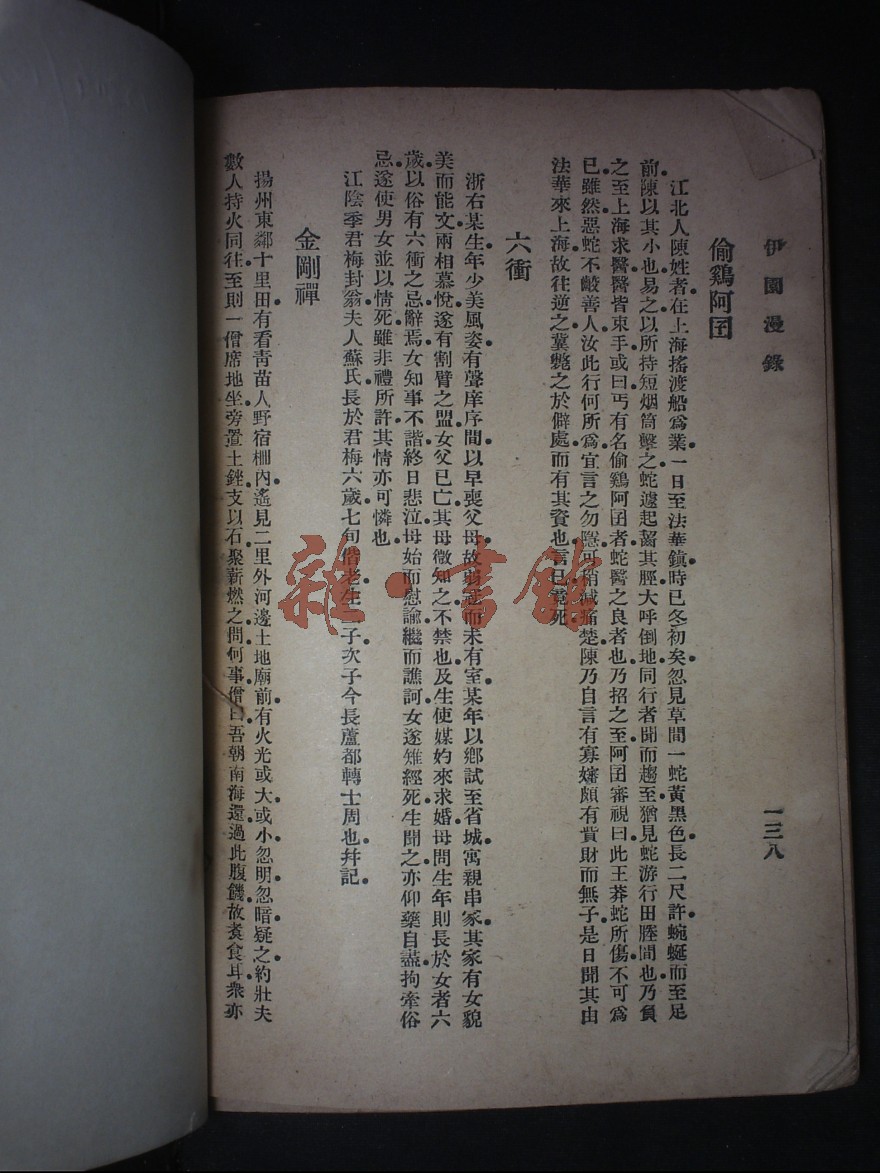 伊園漫錄
一三八
偷鷄阿囝
江北人陳姓者在上海搖渡船爲業一日至法華鎭時已冬初矣忽見草間一蛇黃黑色長二尺許蜿蜒而至足
前陳以其小也易之以所持短烟筒擊之蛇遽起齧其脛大呼倒地同行者聞而趨至猶見蛇游行田塍間也乃負
之至上海求醫醫皆束手或曰丐有名偷鷄阿囝者蛇醫之良者也乃招之至阿囝審視曰此王莽蛇所傷不可爲
已雖然惡蛇不齩善人汝此行何所爲宜言之勿隱可稍減痛楚陳乃自言有寡嬸頗有貲財而無子是日聞其由
法華來上海故往逆之冀斃之於僻處而有其資也言已竟死
六衝
浙右某生年少美風姿有聲庠序間以早喪父母故弱冠而未有室某年以鄉試至省城寓親串家其家有女貌
美而能文兩相慕悅遂有割臂之盟女父已亡其母微知之不禁也及生使媒妁來求婚母問生年則長於女者六
歲以俗有六衝之忌辭焉女知事不諧終日悲泣母始而慰諭繼而譙訶女遂雉經死生聞之亦仰藥自盡拘牽俗
忌遂使男女並以情死雖非禮所許其情亦可憐也
江陰季君梅封翁夫人蘇氏長於君梅六歲七旬偕老生二子次子今長蘆都轉士周也幷記
金剛禪
揚州東鄰十里田有看靑苗人野宿棚內遙見二里外河邊土地廟前有火光或大或小忽明忽暗疑之約壯夫
數人持火同往至則一僧席地坐旁置土銼支以石聚薪燃之問何事僧曰吾朝南海還過此腹饑故煮食耳衆亦
雜·書館